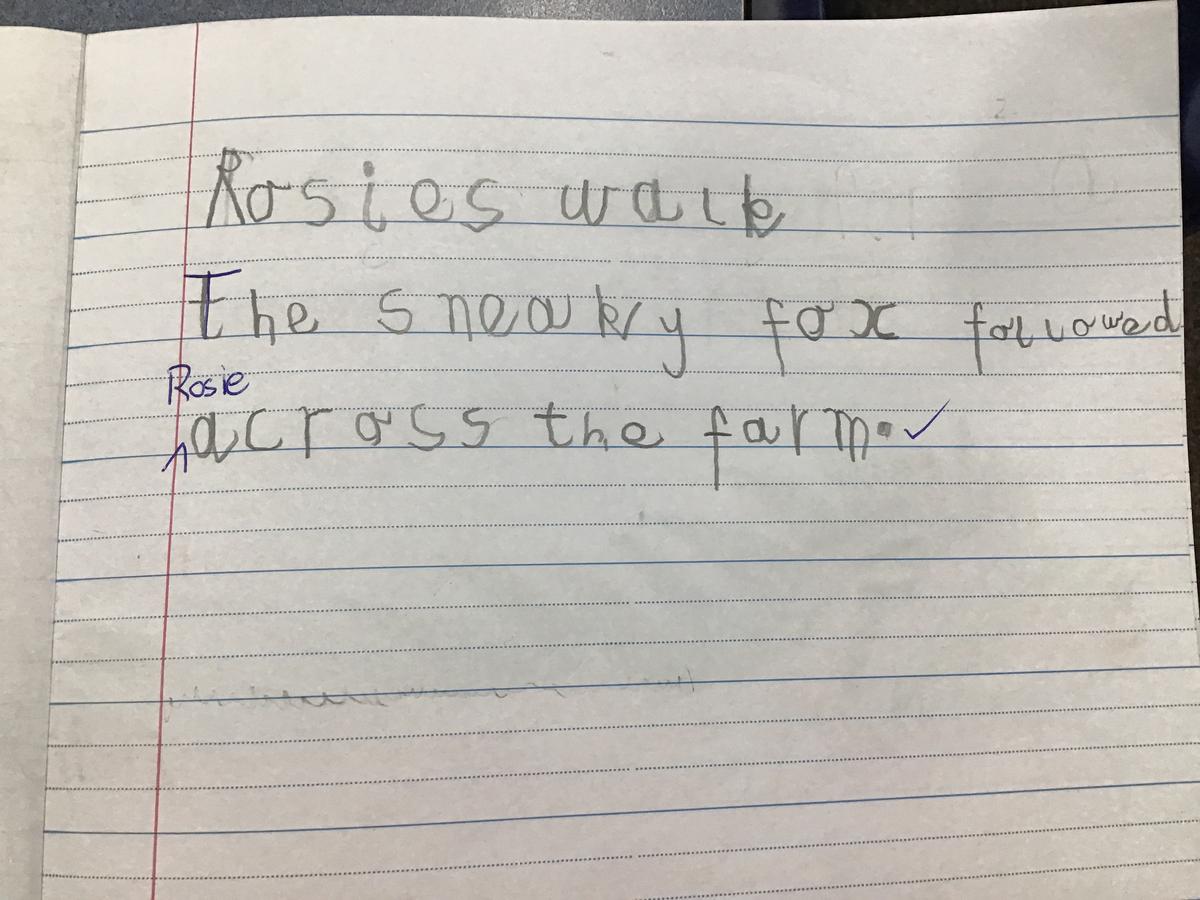 Rosies walk
The sneaky fox followed
Rosie
across the farm.✓